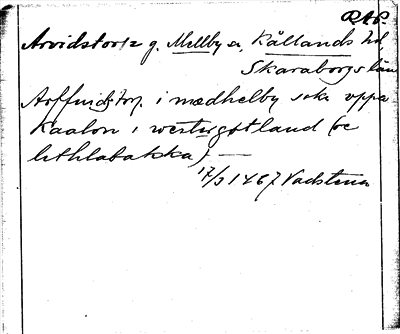 RAP.
Arvidstorp g. Mellby s, Kållands hd,
Skaraborgs län
Arffuidstorp i medhelby sokn vppa
Kaalon i westergøtland (oc
lithlabakka) —
17/3 1467 Vadstena